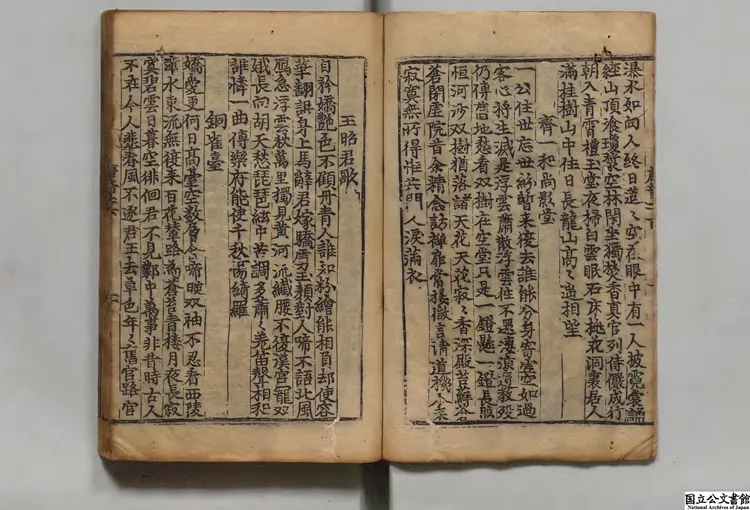 瀑水如向人終日迢〻空在眼中有一人被霓裳誦
經山頂飡瓊漿空林閑坐獨焚香真官列侍儼成行
朝入青霄禮玉堂夜掃白雲眠石床桃花洞裏居人
滿桂樹山中住日長龍山高〻遥相望
齊一和尚影堂
一公住世忘世紛暫來復去誰能分身寄虚空如過
客心將生滅是浮雲蕭散浮雲往不還凄凉遺教歿
仍傳舊地愁看双樹在空堂只是一燈懸一燈長照
恒河沙双樹猶落諸天花天花寂〻香深殿苔蘚蒼
蒼閉虚院昔余精念訪禪扉常接微言清道機今來
寂寞無所得唯共門人淚滿衣
王昭君歌
自矜嬌艷色不顧丹青人誰知粉繪能相負却使容
華翻誤身上馬辭君嫁驕虜玉顔對人啼不語北風
鴈急浮雲秋萬里獨見黄河流纖腰不復漢宮寵双
蛾長向胡天愁琵琶絃中苦調多蕭〻羗笛聲相和
誰憐一曲傳樂府能使千秋傷綺羅
銅雀臺
嬌愛更何日高臺空數層含啼映双袖不忍看西陵
漳水東流無復來百花輦路為蒼苔青樓月夜長寂
寞碧雲日暮空徘徊君不見鄴中萬事非昔時古人
不在今人悲春風不逐君王去草色年〻舊宮路宮
国立公文書館
National Archives of Japan